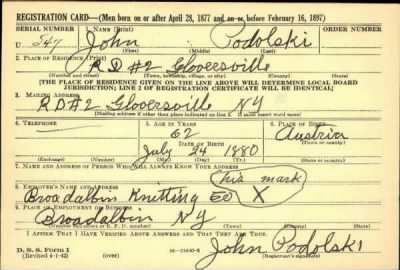 REGISTRATION CARD—(Men born on or after April 28, 1877 and on or before February 16, 1897)
SERIAL NUMBER 1. NAME (Print)
U 547 John Podolski
(First) (Middle) (Last)
2. PLACE OF RESIDENCE (Print)
RD #2 Gloversville
(Number and street) (Town, township, village, or city) (County) (State)
[THE PLACE OF RESIDENCE GIVEN ON THE LINE ABOVE WILL DETERMINE LOCAL BOARD
JURISDICTION; LINE 2 OF REGISTRATION CERTIFICATE WILL BE IDENTICAL]
3. MAILING ADDRESS
RD #2 Gloversville NY
[Mailing address if other than place indicated on line 2. If same insert word same]
4. TELEPHONE 5. AGE IN YEARS 6. PLACE OF BIRTH
62 Austria
DATE OF BIRTH (Town or county)
July 24 1880
(Exchange) (Number) (Mo.) (Day) (Yr.) (State or country)
7. NAME AND ADDRESS OF PERSON WHO WILL ALWAYS KNOW YOUR ADDRESS
(his mark)
8. EMPLOYER'S NAME AND ADDRESS
Broadalbin Knitting Co X
9. PLACE OF EMPLOYMENT OR BUSINESS
Broadalbin NY
(Number and street or R. F. D. number) (Town) (County) (State)
I AFFIRM THAT I HAVE VERIFIED ABOVE ANSWERS AND THAT THEY ARE TRUE.
John Podolski
D. S. S. Form 1
(Revised 4-1-42) (over) (Registrant's signature)